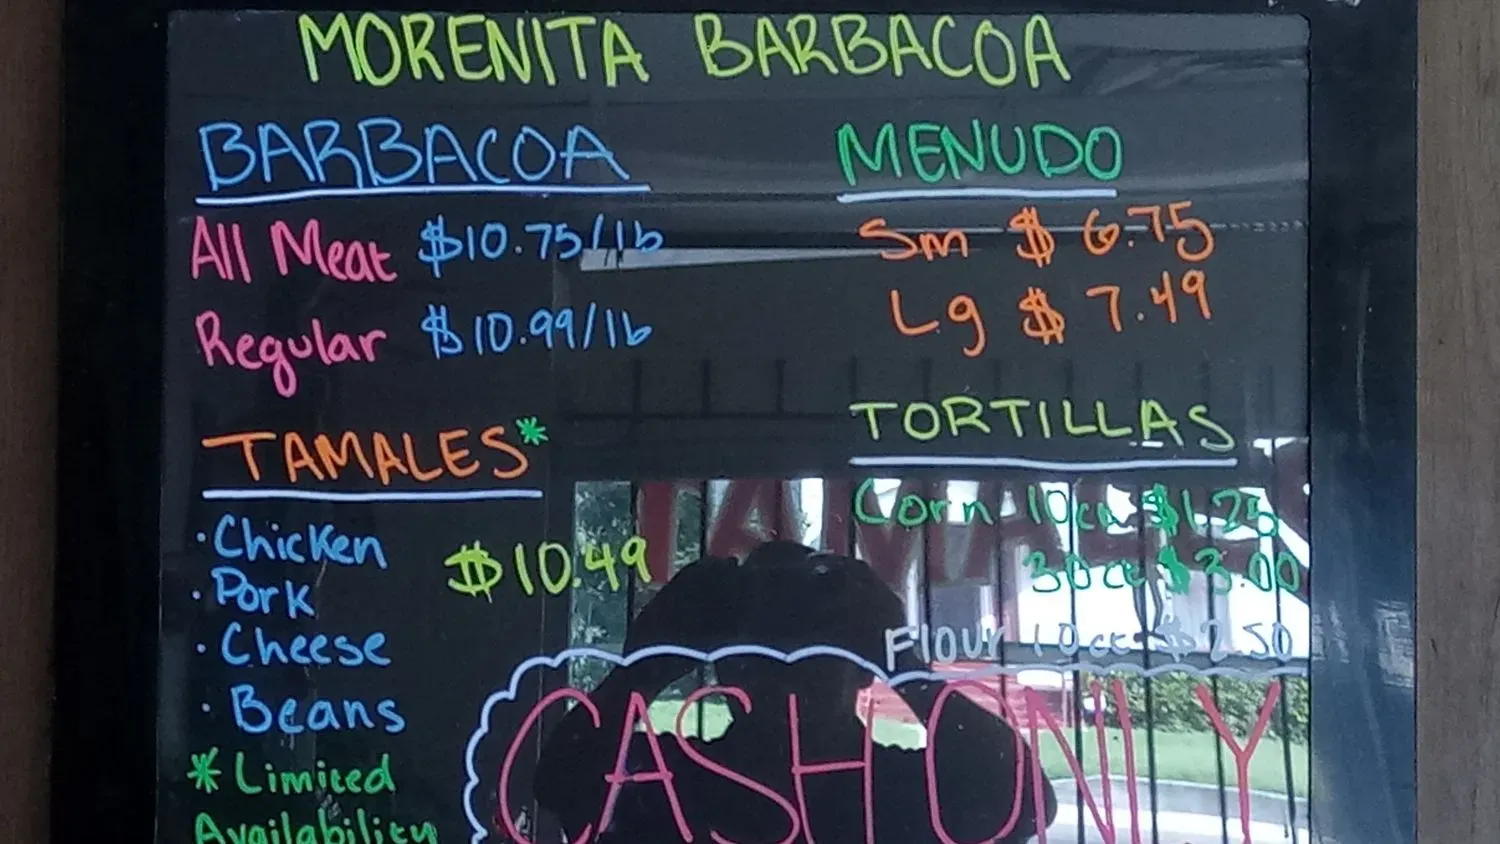 MORENITA BARBACOA
BARBACOA
All Meat $10.75/lb
Regular $10.99/lb
TAMALES*
· Chicken
· Pork
· Cheese
· Beans
$10.49
* Limited
Availability
MENUDO
Sm $6.75
Lg $7.49
TORTILLAS
Corn 10ct $1.25
30ct $3.00
Flour 10ct $2.50
CASH ONLY